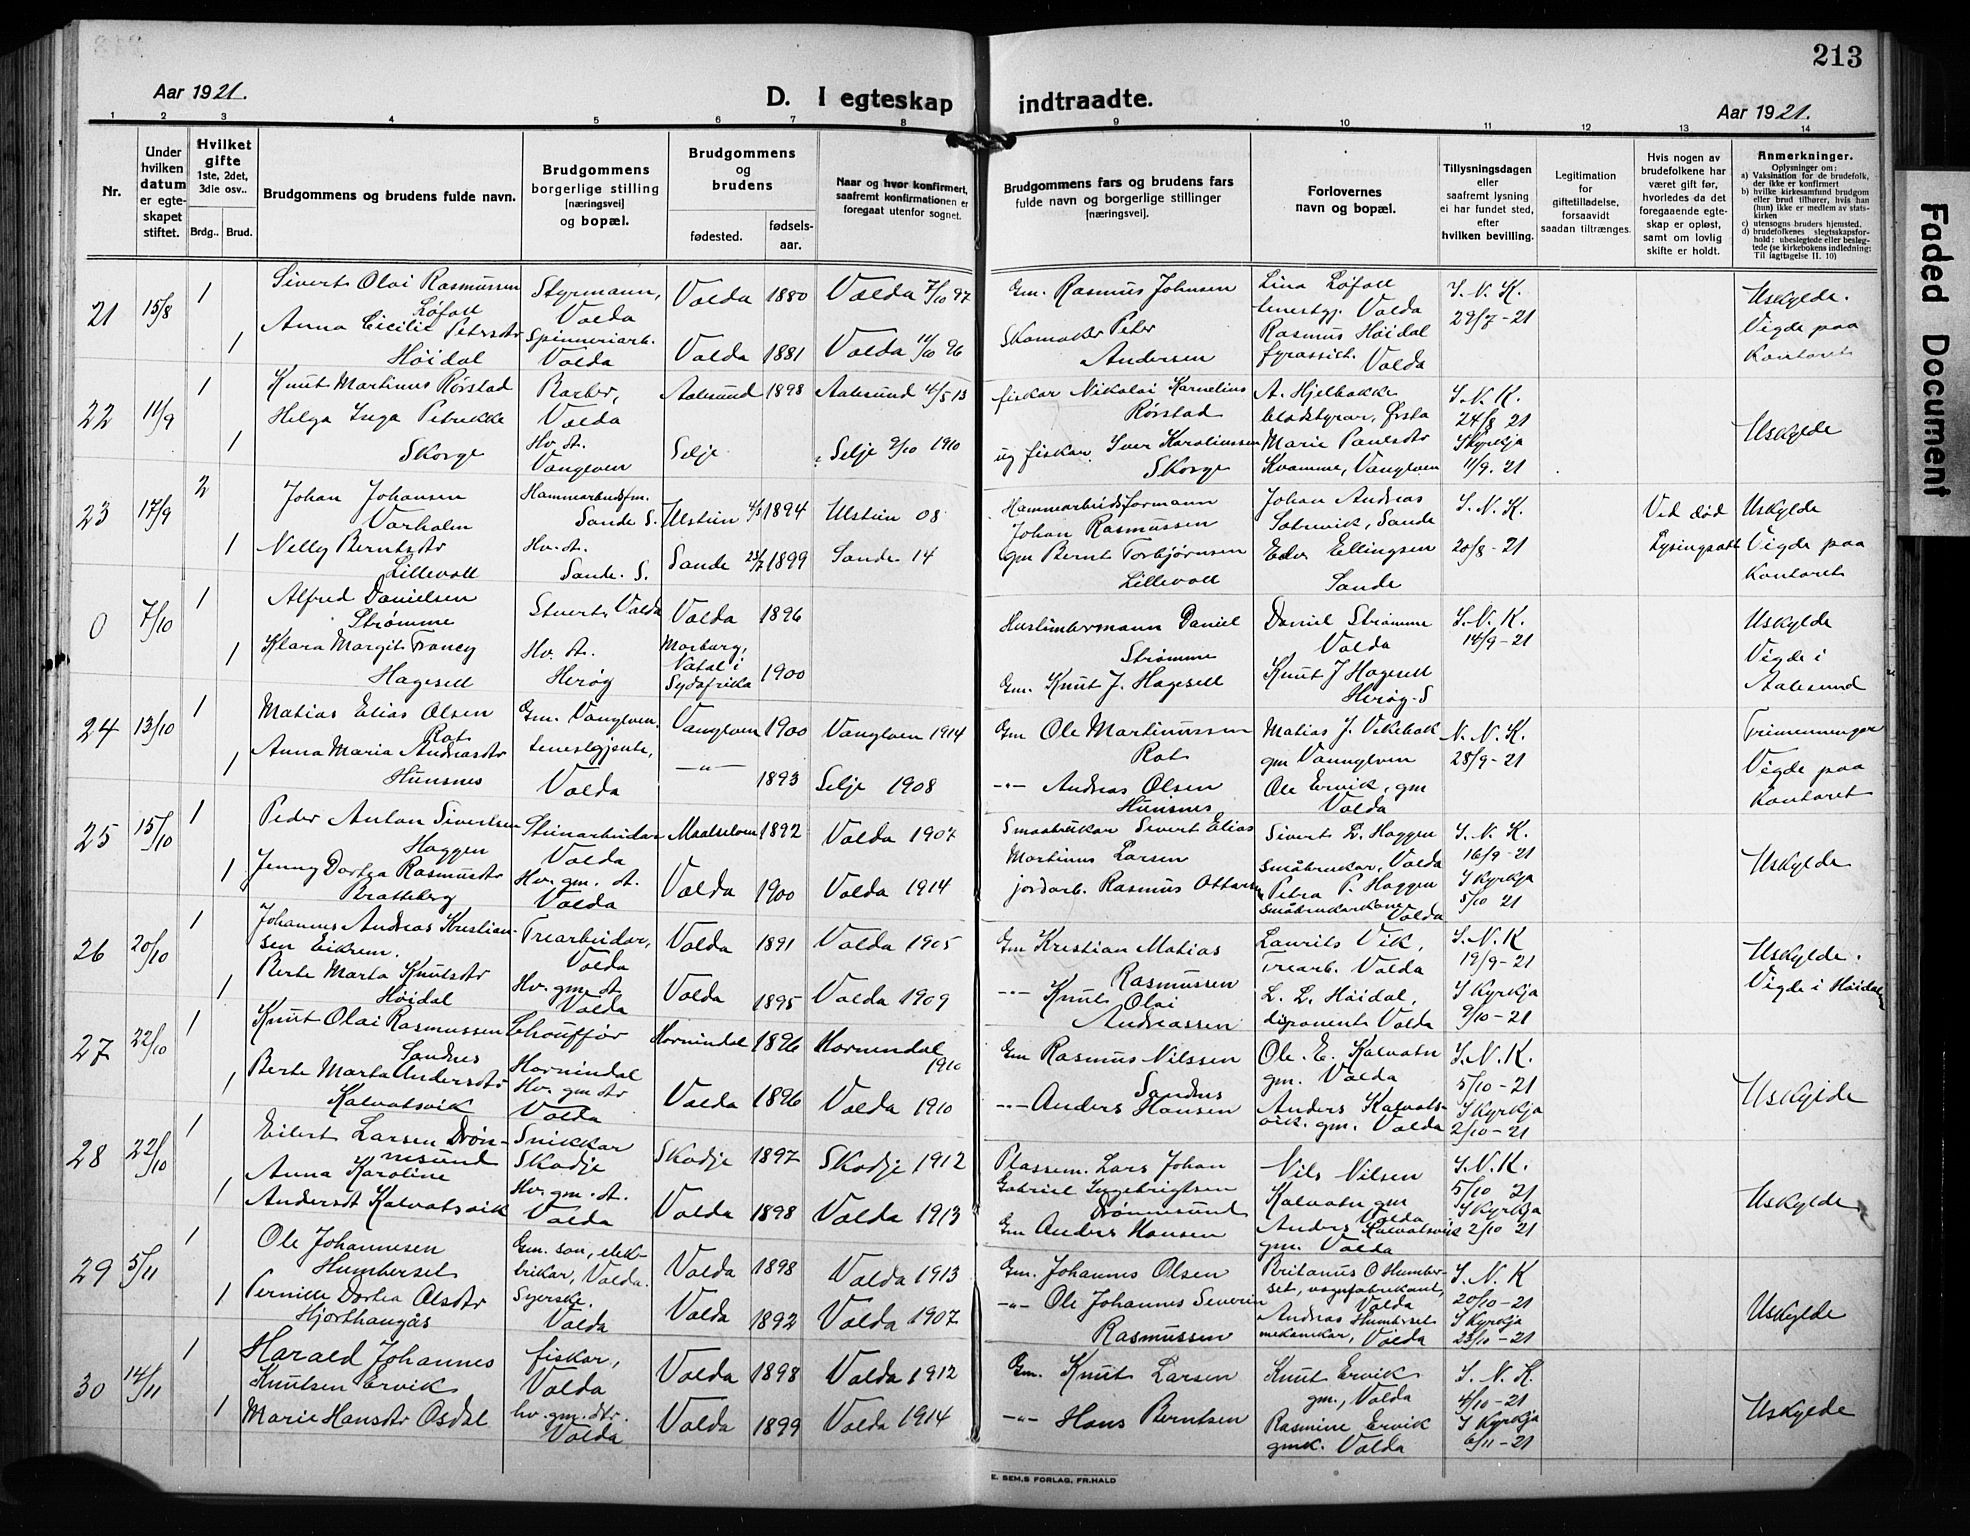 213
Aar 1921.
D. I egteskap indtraadte.
Aar 1921.
1 2 3 4 5 6 7 8 9 10 11 12 13 14
Nr.
Under hvilken datum er egteskapet stiftet.
Hvilket gifte 1ste, 2det, 3die osv..
Brdg.. Brud.
Brudgommens og brudens fulde navn.
Brudgommens borgerlige stilling [næringsvei] og bopæl.
Brudgommens og brudens
fødested. fødsels-aar.
Naar og hvor konfirmert, saafremt konfirmationen er foregaat utenfor sognet.
Brudgommens fars og brudens fars fulde navn og borgerlige stillinger [næringsvei].
Forlovernes navn og bopæl.
Tillysningsdagen eller saafremt lysning ei har fundet sted, efter hvilken bevilling.
Legitimation for giftetilladelse, forsaavidt saadan tiltrænges.
Hvis nogen av brudefolkene har været gift før, hvorledes da det foregaaende egteskap er opløst, samt om lovlig skifte er holdt.
Anmerkninger.
Oplysninger om:
a) Vaksination for de brudefolk, der ikke er konfirmert
b) hvilke kirkesamfund brudgom eller brud tilhører, hvis han (hun) ikke er medlem av statskirken
c) utensogns bruders hjemsted.
d) brudefolkenes slegtsskapsforhold: ubeslegtede eller beslegtede (se kirkebokens indledning: Til iagttagelse II. 10)
21 15/8 1 Sivert Olai Rasmussen Løfoll Styrmann, Volda Volda 1880 Volda 7/10 97 Gm. Rasmus Johnsen Lina Løfoll Volda S. N. K. 29/7-21 Uskylde.
1 Anna Cicilie Petersdtr Høidal Spinneriarb. Volda Volda 1881 Volda 11/10 96 Skomaker Peter Andersen Rasmus Høidal fyrassist. Volda Vigde paa Kontoret
22 11/9 1 Knut Martinus Rørstad Barber, Volda Aalesund 1898 Aalesund 4/5 13 fiskar Nikolai Karnelius Rørstad A. Hjelbakke bladstyrar, Ørsta S. N. K. 24/8 21 Uskylde
1 Helga Inga Petrikke Skorge Hv. dt. Vanylven Selje Selje 9/10 1910 ug fiskar Iver Karolinssen Skorge Marie Paulsdtr Kvamme, Vanylven I Kyrkja 11/9-21
23 17/9 2 Johan Johansen Varholm Hammararbeidsfm. Sande S. Ulstein 1894 Ulstein 08 Hammararbeidsformann Johan Rasmussen Johan Andreas Sætrevik, Sande S. N. K. Ved død Uskylde
1 Nelly Berntsdtr Lillevoll Hv. dt. Sande. S. Sande 1899 Sande 14 gm Bernt Torbjørnsen Lillevoll Edv Ellingsen Sande 20/8-21 Vigde paa Kontoret
0 7/10 1 Alfred Danielsen Strømme Stuert, Volda Volda 1896 Hustimbermann Daniel Strømme Daniel Strømme Volda S. N. K. 14/9-21 Uskylde
1 Klara Margit Francy Hagesell Hv. dt. Herøy Marburg, Natal i Sydafrika 1900 Gm. Knut J. Hagesell Knut J Hagesell Herøy. S Vigde i Aalesund
24 13/10 1 Matias Elias Olsen Rot Gm. Vanylven. Vanylven 1900 Vanylven 1914 Gm Ole Martinussen Rot Matias J. Vikebak gm Vannylven N. N. K. 28/9-21 Trimenninger
1 Anna Maria Andreasdtr Hunsnes tenestgjente, Volda —"— 1893 Selje 1908 -"- Andreas Olsen Hunsnes Ole Ervik, gm Volda Vigde paa Kontoret
25 15/10 1 Peder Anton Sivertsen Haggen Steinarbeidar Volda Maalselven 1892 Volda 1907 Smaabrukar Sivert Elias Martinus Larsen Sivert L. Haggen Småbrukar, Volda S. N. K. 16/9-21 Uskylde
1 Jenny Dortea Rasmusdtr Bratteberg Hv. gm. dt. Volda Volda 1900 Volda 1914 jordarb. Rasmus Ottarsen Petra P. Haggen småbrukarkone Volda I Kyrkja 5/10 21
26 20/10 1 Johannes Andreas Kristiansen Eikrem. Trearbeidar, Volda Volda 1891 Volda 1905 Gm Kristian Matias Rasmussen Laurits Vik, Trearb. Volda S. N. K 19/9-21 Uskylde.
1 Berte Marta Knutsdtr Høidal Hv. gm. dt Volda Volda 1895 Volda 1909 -"- Knut Olai Andreassen L. L. Høidal, disponent Volda I Kyrkja 9/10-21 Vigde i Høidal
27 22/10 1 Knut Olai Rasmussen Sandnes Chouffør Hornindal Hornindal 1896 Hornindal 1910 Gm Rasmus Nilssen Sandnes Ole. E. Kalvatn gm. Volda S. N. K. 5/10-21 Uskylde
1 Berte Marta Andersdtr Kalvatsvik Hv. gm dtr Volda Volda 1896 Volda 1910 -"- Anders Hansen Anders Kalvatsvik. gm. Volda I Kyrkja 2/10-21
28 22/10 1 Eilert Larsen Drønnesund Snikkar Skodje Skodje 1897 Skodje 1912 Plassem. Lars Johan Gabriel Ingebrigtsen Drønnesund Nils Nilsen Kalvatn gm Volda S. N. K. 5/10 21 Uskylde
1 Anna Karoline Andersdt Kalvatsvik Hv. gm. dt. Volda Volda 1898 Volda 1913 Gm Anders Hansen Anders Kalvatsvik gm. Volda I Kyrkja 2/10 21
29 5/11 1 Ole Johannesen Humberset Gm. son, elektrikar, Volda. Volda 1898 Volda 1913 Gm. Johannes Olsen Britanus O Humberset, vognfabrikant, Volda S. N. K 20/10-21 Uskylde
1 Pernille Dortea Olsdtr Hjorthaugås Syerske. Volda Volda 1892 Volda 1907 -"- Ole Johannes Severin Rasmussen Andreas Humberset mekanikar, Volda I Kyrkja 23/10-21
30 14/11 1 Harald Johannes Knutsen Ervik fiskar, Volda Volda 1898 Volda 1912 Gm. Knut Larsen Knut Ervik gm, Volda S. N. K. 4/10-21 Uskylde
1 Marie Hansdtr Osdal hv. gm. dtr. Volda Volda 1899 Volda 1914 -"- Hans Berntsen Rasmine Ervik gmk. Volda I Kyrkja 6/11-21
E. SEM.S FORLAG, FR.HALD
Faded Document